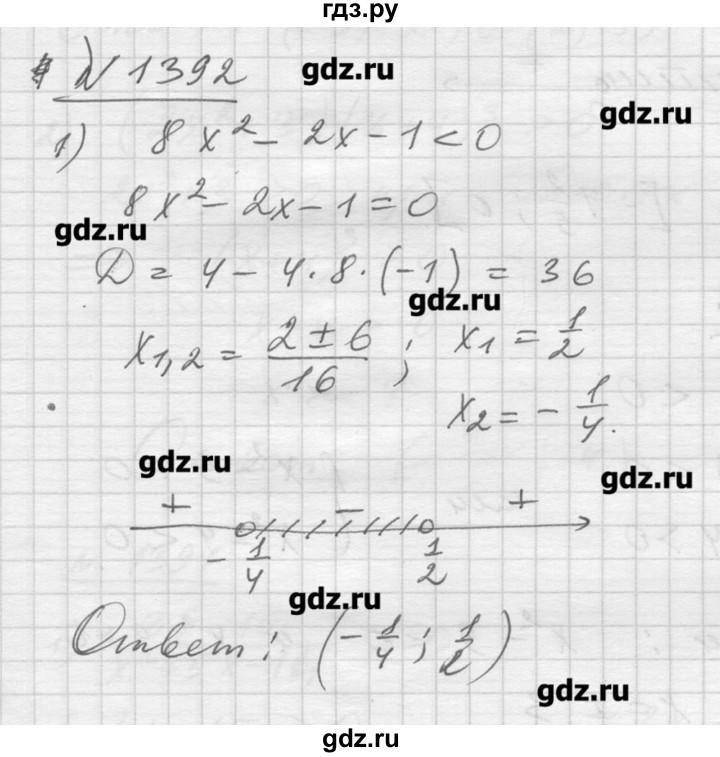 гдз.ру
№ 1392
gdz.ru
gdz.ru
1) 8x² - 2x - 1 < 0
8x² - 2x - 1 = 0
gdz.ru
D = 4 - 4·8·(-1) = 36
gdz.ru
x₁,₂ = (2 ± 6)/16 ; x₁ = 1/2
x₂ = - 1/4.
gdz.ru
gdz.ru
+ - +
- 1/4 1/2
gdz.ru
Ответ: (- 1/4 ; 1/2)
gdz.ru
gdz.ru